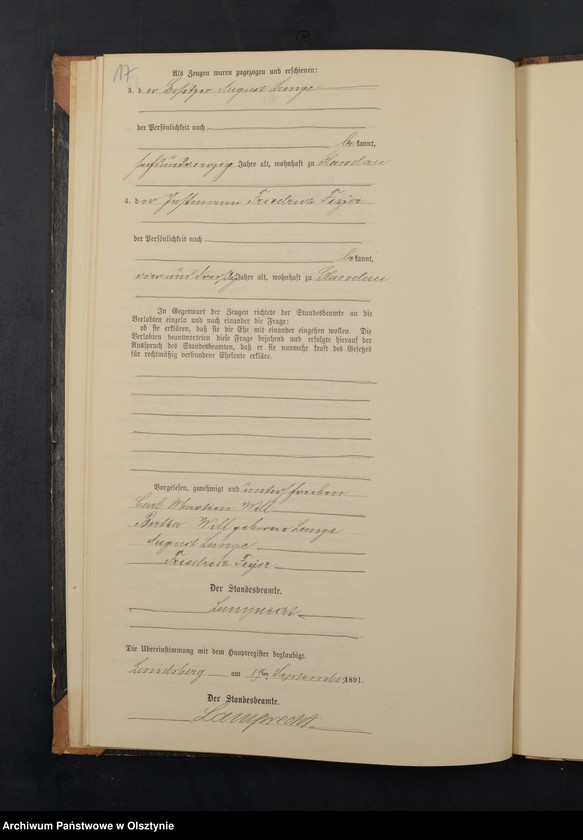 17
Als Zeugen waren zugezogen und erschienen:
3. der Besitzer August Lange
der Persönlichkeit nach
be kannt,
sechsundvierzig Jahre alt, wohnhaft zu
4. der Instmann Friedrich Feyer
der Persönlichkeit nach
be kannt,
vierunddreißig Jahre alt, wohnhaft zu
In Gegenwart der Zeugen richtete der Standesbeamte an die
Verlobten einzeln und nach einander die Frage:
ob sie erklären, daß sie die Ehe mit einander eingehen wollen. Die
Verlobten beantworteten diese Frage bejahend und erfolgte hierauf der
Ausspruch des Standesbeamten, daß er sie nunmehr kraft des Gesetzes
für rechtmäßig verbundene Eheleute erkläre.
Vorgelesen, genehmigt und unterschrieben
Carl Will
Bertha Will geborene Lange
August Lange
Friedrich Feyer
Der Standesbeamte.
Lamprecht
Die Uebereinstimmung mit dem Hauptregister beglaubigt.
Landsberg am 19ten September 1891.
Der Standesbeamte.
Lamprecht
Archiwum Państwowe w Olsztynie